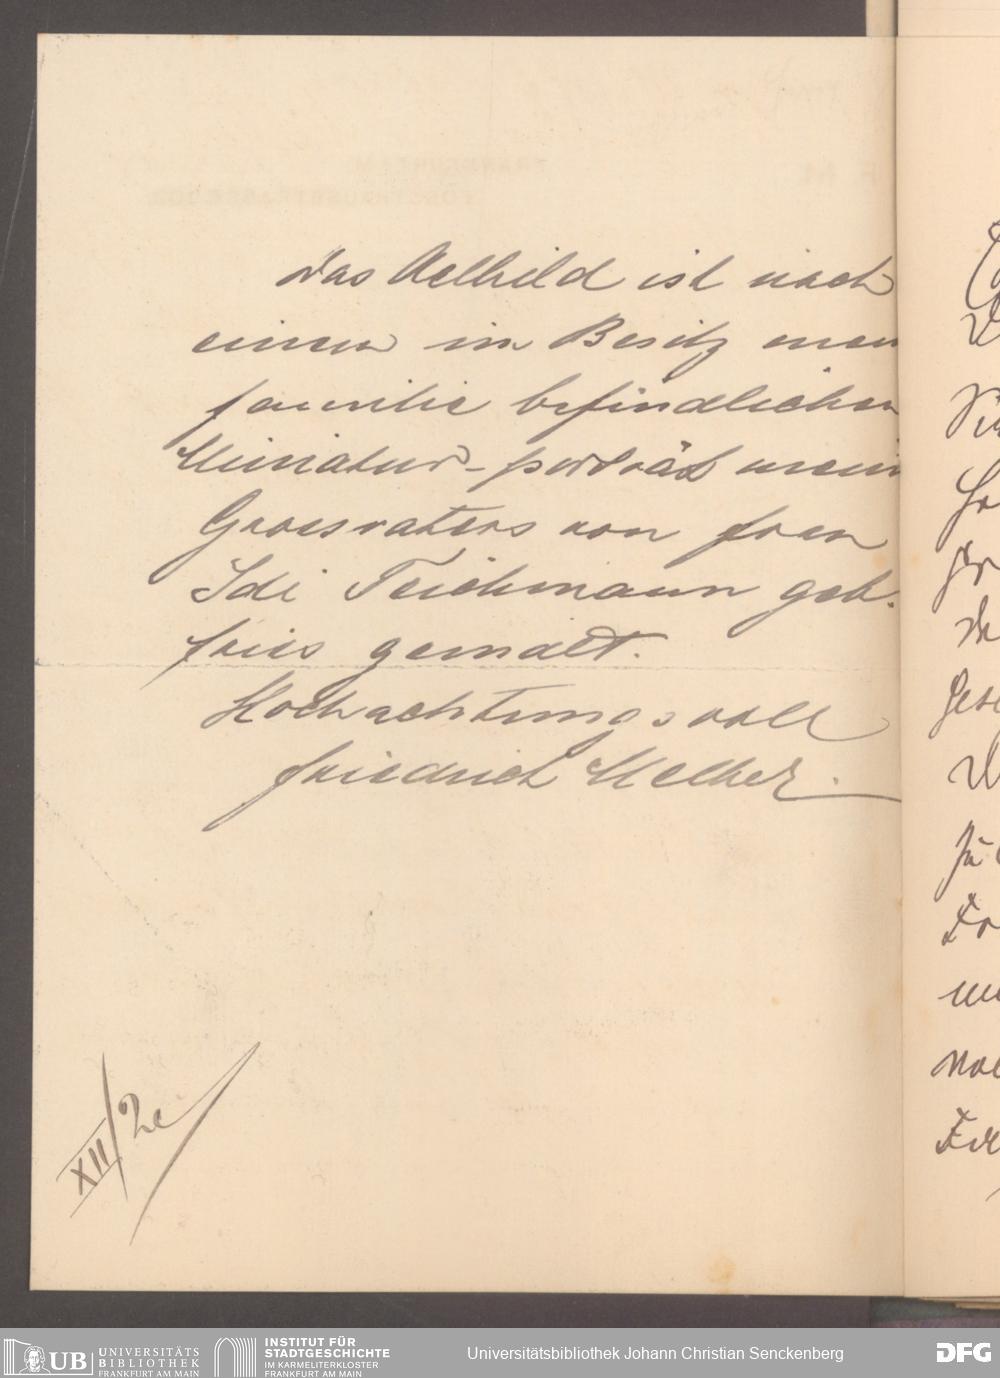 Das Oelbild ist nach
einem im Besitz mein
Familie befindlichen
Miniatur-porträt mein
Grossvaters von Frau
Idi Teichmann geb.
Fries gemalt.
Hochachtungsvoll
Friedrich Melber.
XII/2e
UB UNIVERSITÄTS
BIBLIOTHEK
FRANKFURT AM MAIN
INSTITUT FÜR
STADTGESCHICHTE
IM KARMELITERKLOSTER
FRANKFURT AM MAIN
Universitätsbibliothek Johann Christian Senckenberg
DFG